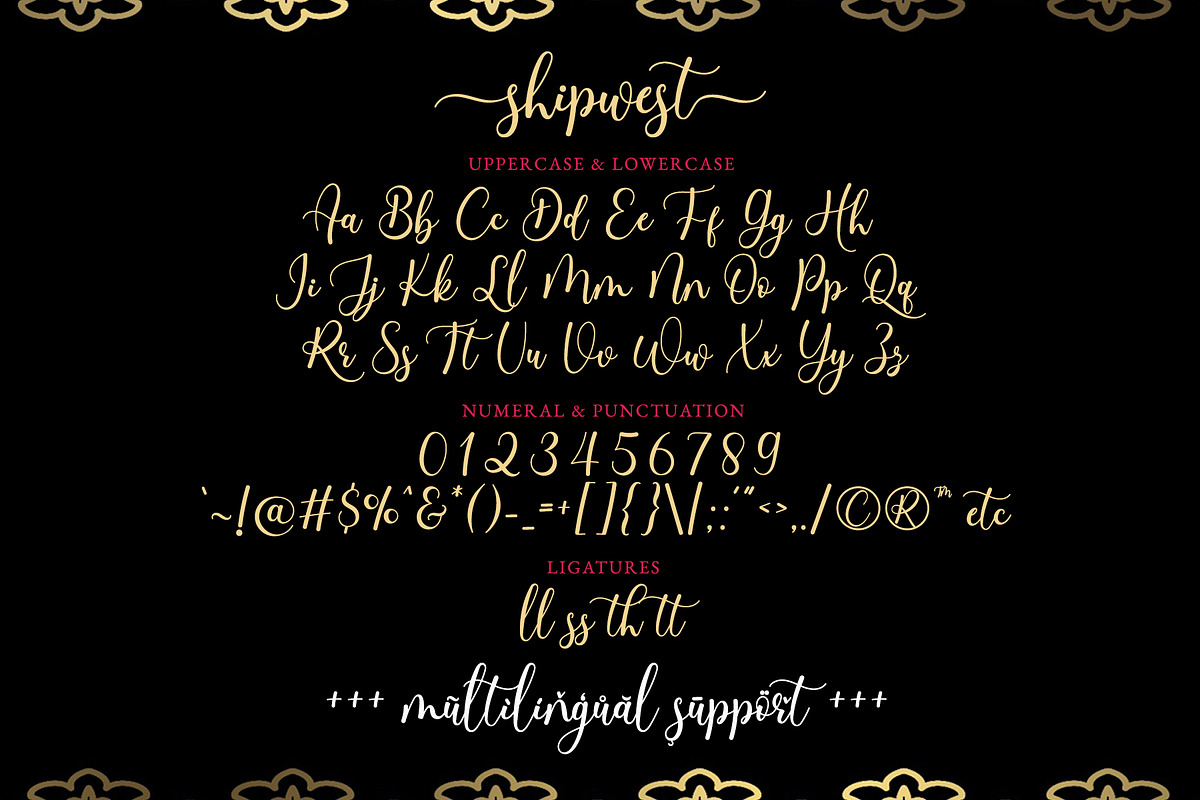 shipwest
UPPERCASE & LOWERCASE
Aa Bb Cc Dd Ee Ff Gg Hh
Ii Jj Kk Ll Mm Nn Oo Pp Qq
Rr Ss Tt Uu Vv Ww Xx Yy Zz
NUMERAL & PUNCTUATION
0123456789
`~!@#$%^&*()-_=+[]{}\|;:'"<>,./©®™ etc
LIGATURES
ll ss th tt
+++ mũltìlíňģůăl şūppöřt +++